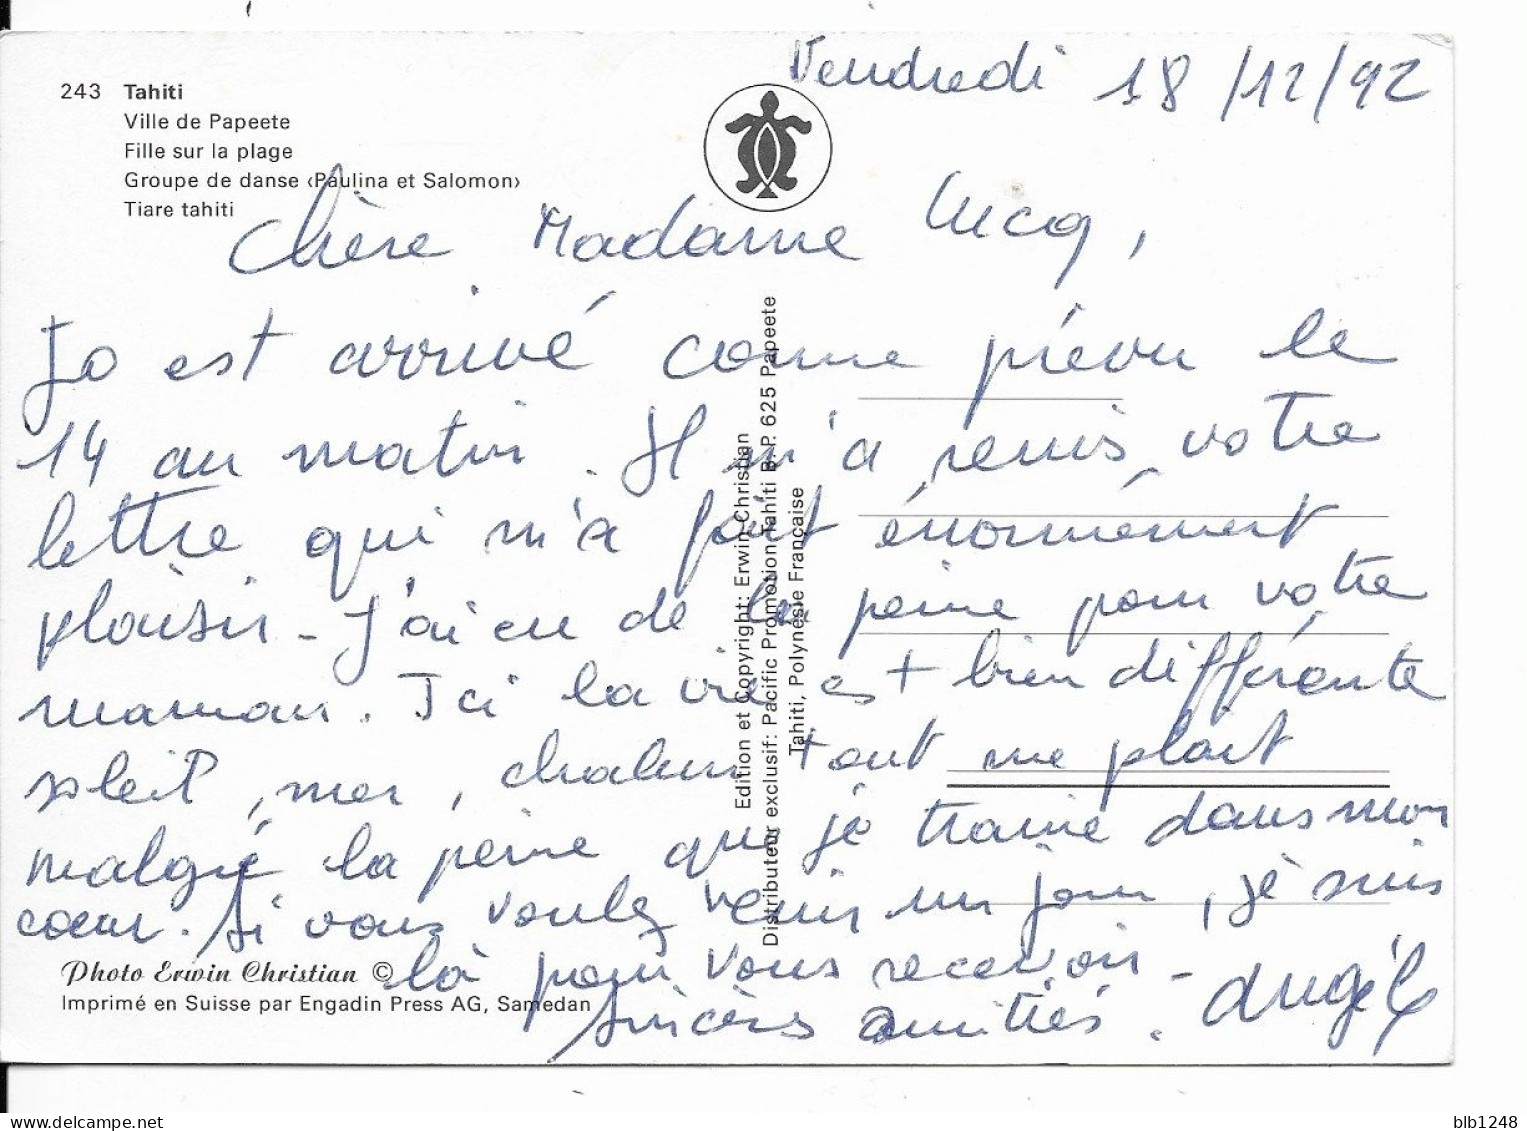 Vendredi 18/12/92
243 Tahiti
Ville de Papeete
Fille sur la plage
Groupe de danse ‹Paulina et Salomon›
Tiare tahiti
Chère Madame Lucq,
Jo est arrivé comme prévu le
14 au matin. Il m'a remis votre
lettre qui m'a fait énormément
plaisir - J'ai eu de la peine pour votre
maman. Ici la vie est bien différente
soleil, mer, chaleur tout me plait
malgré la peine que je traine dans mon
cœur. Si vous voulez venir un jour, je suis
là pour vous recevoir -
Sincères amitiés. Angèle
Edition et Copyright: Erwin Christian
Distributeur exclusif: Pacific Promotion Tahiti B.P. 625 Papeete
Tahiti, Polynésie Française
Photo Erwin Christian ©
Imprimé en Suisse par Engadin Press AG, Samedan
delcampe.net
blb1248